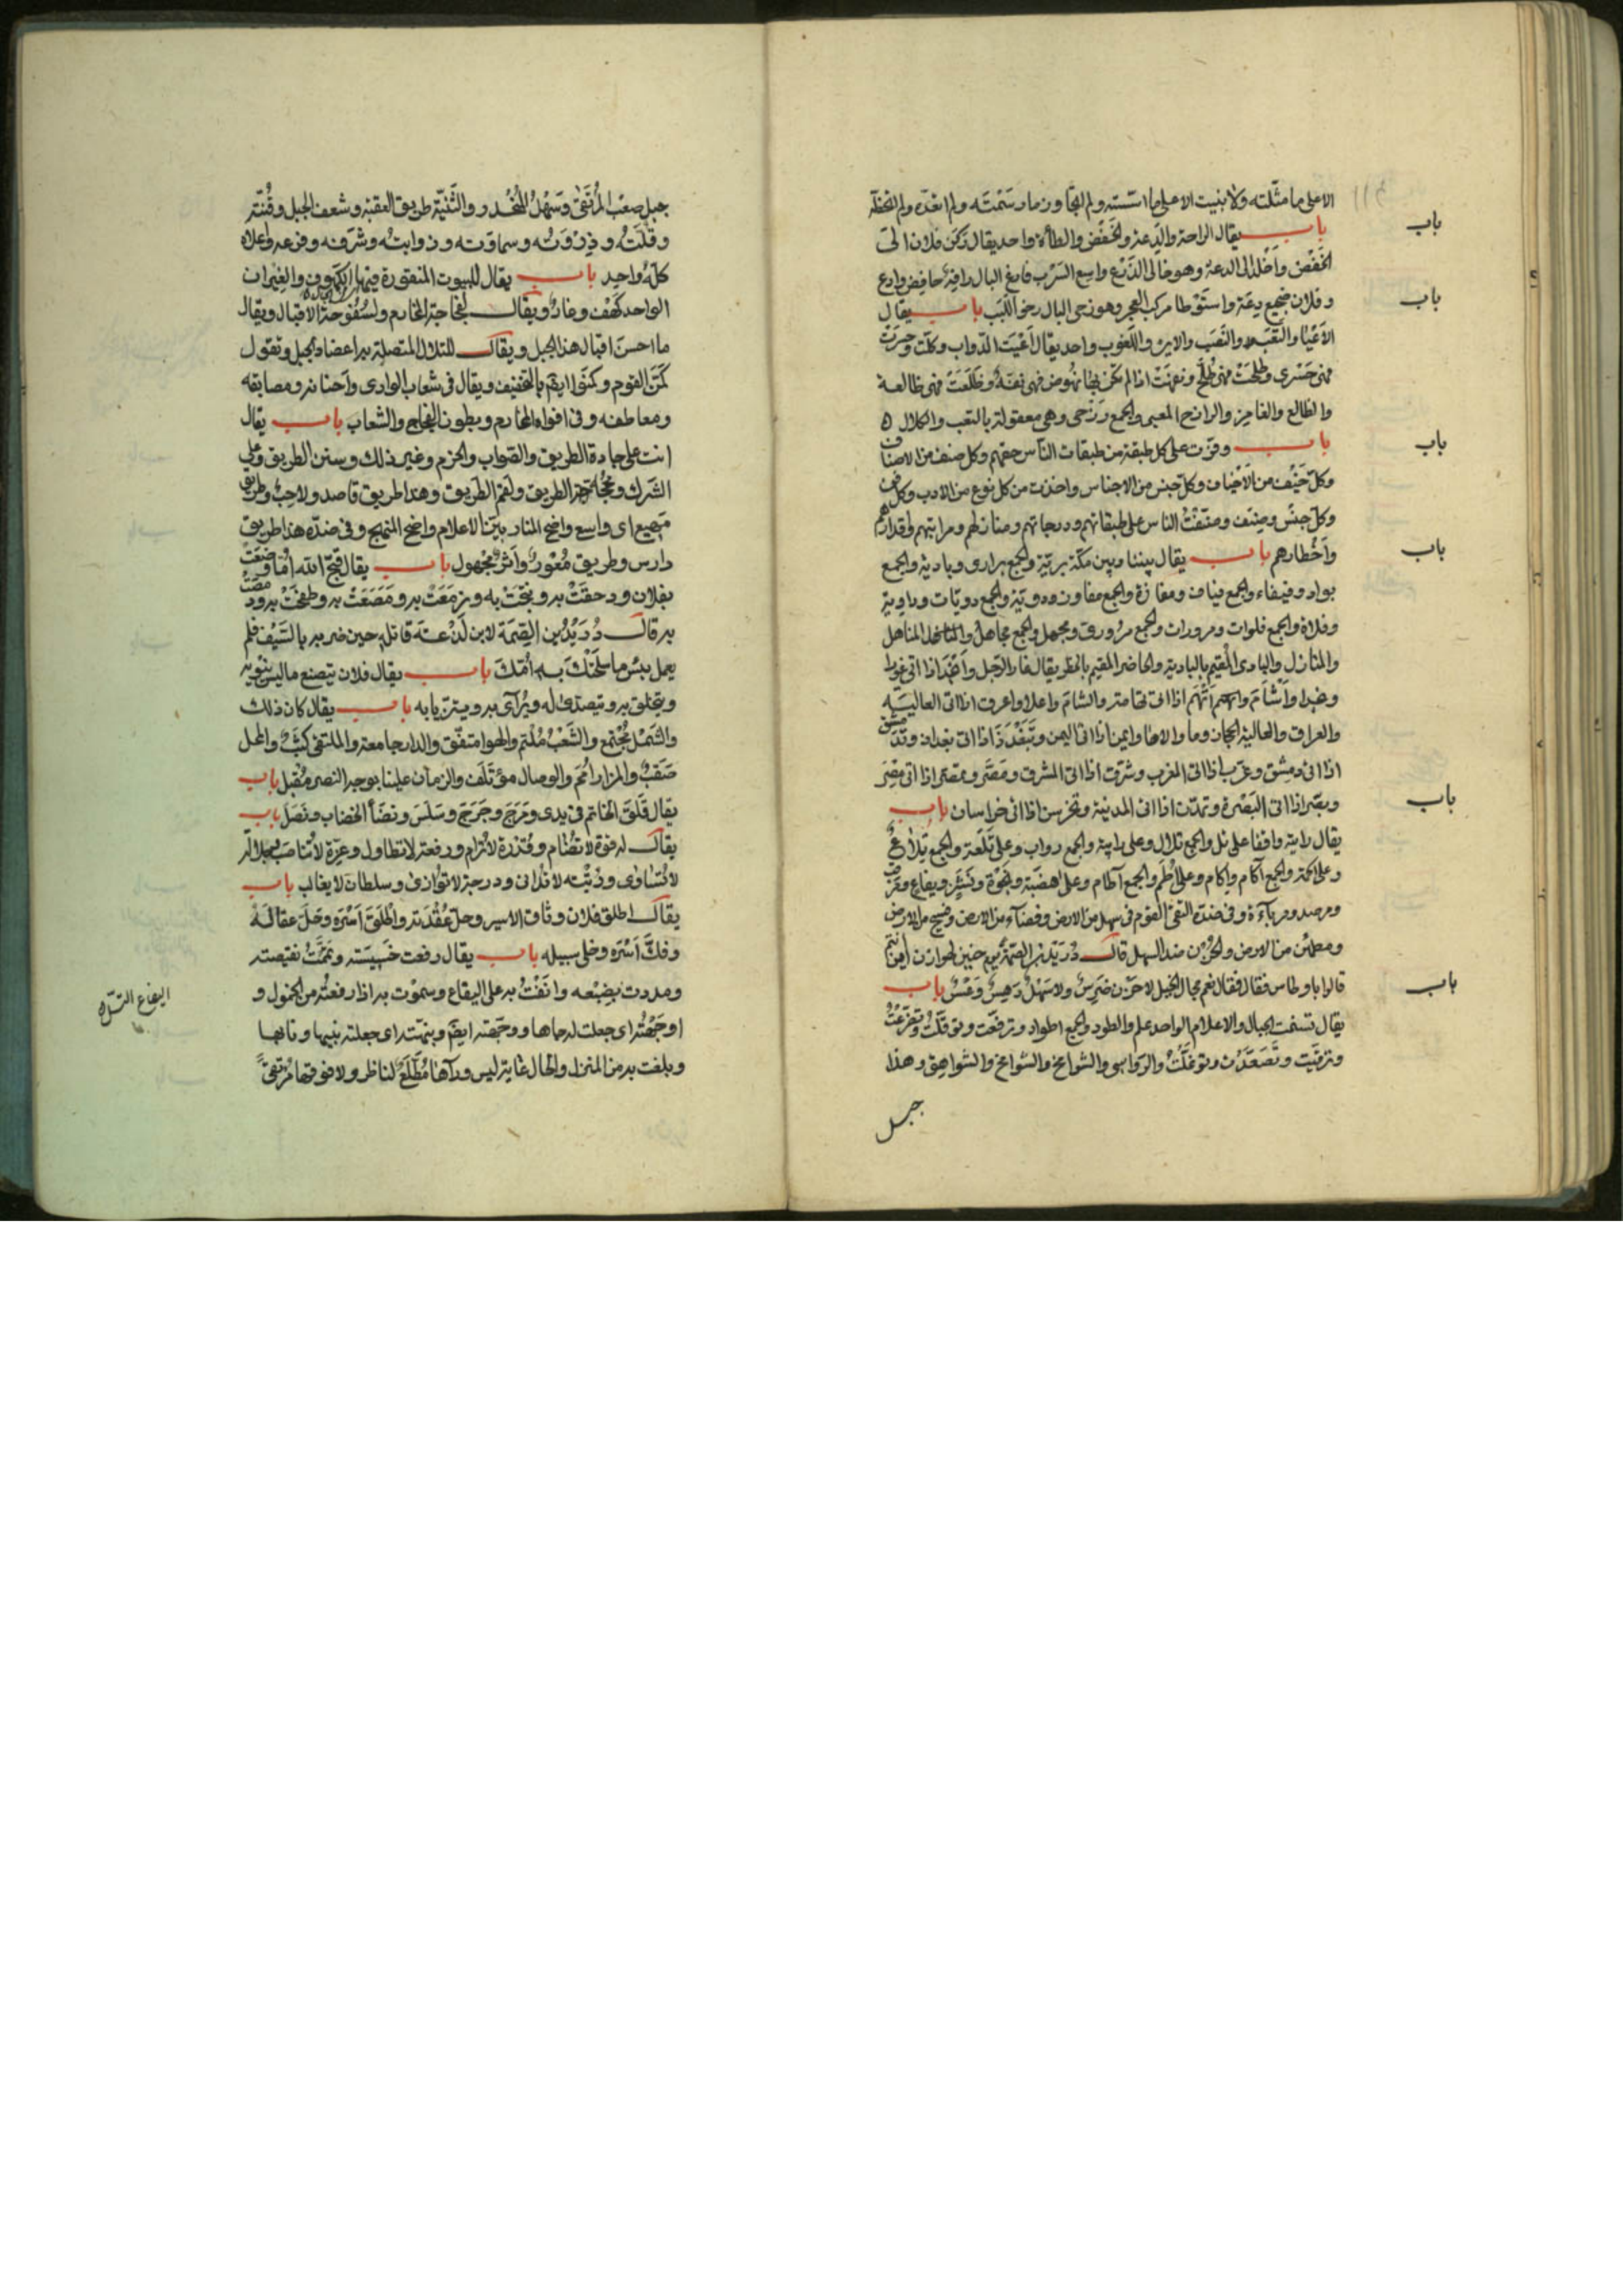 الاعلى ما مثّلته ولا بنيت الا على ما اسّسته ولم اتجاوز ما رسَمْتَه ولم اتعدّه ولم اتخطّه
باب يقال الراحة والدِّعة والخَفْض والطأة واحد يقال ركن فلان الى
الخَفْض واَخْلد الى الدعة وهو خالى الذَّرْع واسع السَّرْب فارغ البال رافِهٌ خافِض وادِع
وفلان ضجيع دِعَة واستَوْطا مركب العجز وهو رخى البال رخو اللَّبَب باب يقال
الاَعْيَا والتَّعَب والنَّصَب والاين واللُّغوب واحد يقال اَعْيَت الدّواب وكلّت وحسِرَت
فهى حَسْرى وطلِحَت فهى طُلَّح اذا لم تكن بها نهُوض فهى وظَلَعَت فهى ظالعة
والظالع والغامِز والرازح المعيى والجمع رَزْحى وهى معقولة بالتعب والكلال
باب وفّرت على كل طبقة من طبقات النّاس حقهم وكل صنف من الاصناف
وكلّ خَيْف من الاَخْياف وكلّ جنس من الاجناس واخذت من كل نوع من الادب وكل فن
وكلّ جنس وصِنف وصنّفْتُ الناس على طبقاتهم ودرجاتهم ومنازلهم ومراتبهم واقدارهم
واَخْطارهم باب يقال بيننا وبين مكّة بريّة والجمع برارى وبادية والجمع
بواد وفيفاء والجمع فياف ومفازة والجمع مفاوز ودوّية والجمع دويّات وداوية
وفلاة والجمع فلوات ومرورات والجمع مرورى ومجهل والجمع مجاهل والمناهل
والمنازل والبادى المقيم بالبادية والحاضر المقيم بالحضر يقال غار الرّجل واَنْجَد اذا اتى غورا
ونجدا واَشْاَمَ واَتْهَم اذا اتى تهامة والشام واعرق اذا اتى العاليَة
والعراق والعالية الحجاز وما والاها وايمن اذا اتى اليمن وتَبَغْدَدَ اذا اتى بغداد وتدمشق
اذا اتى دمِشق وغرّب اذا اتى المغرب وشرّق اذا اتى المشرق ومَصَّر وتمصّر اذا اتى مِصْرَ
وبصّر اذا اتى البَصْرة وتمدّن اذا اتى المدينة وتخرسن اذا اتى خراسان باب
يقال رايته واقفا على تل والجمع تلال وعلى رابية والجمع رواب وعلى تَلْعَة والجمع تِلاعٌ
وعلى اكمة والجمع آكام واِكام وعلى اُطُم والجمع آطام وعلى هَضْبَة ونجوة ونَشَز ويفاع ومرقب
ومرصد ومرباءة وفى ضدّه التقى القوم فى سهل من الارض وفضآء من الارض وفسيح من الارض
ومطمئن من الارض والحَزْن ضد السهل قال دُرَيْد بن الصِّمّة يوم حنين لهوازن اين انتم
قالوا باوطاس فقال نعم مجال الخيل لا حَزْن ضَرِسٌ ولا سَهْلٌ دَهِسٌ باب
يقال تسنّمت الجبال والاعلام الواحد علم والطود والجمع اطواد وترفّعت وتوقّلْتُ وتفرّعْتُ
وترقّيت وتَصَعَّدت وتوغّلْتُ والرّواسى والشوامخ والشواهق وهذا
جبل
باب
باب
باب
باب
باب
باب
جبل صعْب المُرْتَقى وسَهْلُ المُنْحَدر والثَّنيّة طريق العقبة وشعف الجبل وقُنّته
وقُلّتُه وذِرْوَتُه وسماوته وذوابتُه وشرَفه وفرعه واعلاه
كلّهُ واحِد باب يقال للبيوت المنقورة فيها الكهوف والغِيران
الواحد كَهْف وغار ويقال
ما احسن اقبال هذا الجبل ويقال للتلال المتصلة به اعضاد الجبل وتقول
كَمَن القوم وكمنوا ايضًا بالتخفيف ويقال فى شعاب الوادى واَحنائه ومضايقه
ومعاطفه وفى افواه المخارم وبطون الفجاج والشعاب باب يقال
انت على جادة الطريق والصّواب والحزم وغير ذلك وسنن الطريق وعلى
الشَّرَك ومحجّة الطريق ولَقَم الطّريق وهذا طريق قاصد ولاحِبٌ وطريق
مَهْيع اى واسع واضح المنار بيّن الاعلام واضح المنهج وفى ضدّه هذا طريق
دارس وطريق مُعْوِرٌ واَثَرٌ مجْهول باب يقال قبّح الله اُمّا وضَعَت
بفلان ودحقَتْ به
به قال دُرَيْدُ بن الصِّمّة لابن لَدْعَة قاتله حين ضربه بالسَّيْف فلم
يعمل بئس ما سلّحتْكَ به اُمّك باب يقال فلان يتصنع ما ليس فيه
ويتخلق به ويتصدى له ويُرآى به ويتزيّا به باب يقال كان ذلك
والشَّمْل مُجْتمع والشَّعْب مُلْتئم والهوا متفّق والدار جامعة والملتقى كثَبٌ والمحل
صَقَبٌ والمزار اُمَم والوصال مؤتَلَف والزمان علينا بوجه النصر مُقبِل باب
يقال قَلِقَ الخاتم فى يدى ومَرِجَ وجَرِجَ وسَلِسَ ونضَا الخضاب ونَصَل باب
يقال له قوّة لا تضام وقُدْرة لا تُرام ورفعة لا تطاول وعِزّة لا تُناصَب وجلالة
لا تُساوى ورُتْبَة لا تدانى ودرجة لا تُوازى وسلطان لا يغالب باب
يقال اطلق فلان وثاق الاسير وحلّ عُقْدَته واَطْلق اَسْرَه وحَلّ عقالَه
وفكّ اَسْرَه وخلى سبيله باب يقال رفعت خَسيسَته وتمّمْتُ نقيصته
ومددت بضَبْعه وانَفْتُ به على اليفاع وسمَوْت به اذا رفعتُه من الخمول و
اوجَهْتُه اى جعلت له جاها ووجّهته ايضًا وبنّهته اى جعلته نبيها ونابها
وبلغت به من المنزل والحال غاية ليس ورآءها مُطّلَعٌ لناظر ولا فوقها مُرْتقىً
اليفاع التلّ